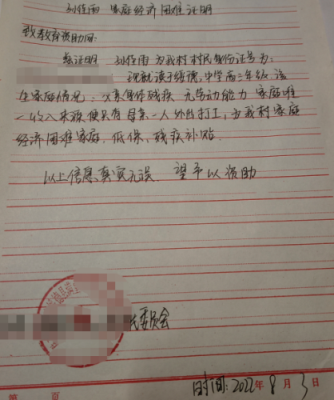 家庭经济困难证明
致教育资助网:
兹证明 为我村村民 身份证号为:
现就读于绥德中学高三年级 该
生家庭情况: 父亲身体残疾 无劳动能力 家庭唯
一收入来源便只有母亲一人外出打工, 为我村家庭
经济困难家庭, 低保, 残疾补贴
以上信息真实无误 望予以资助
委员会
时间: 2022年8月3日
第 页